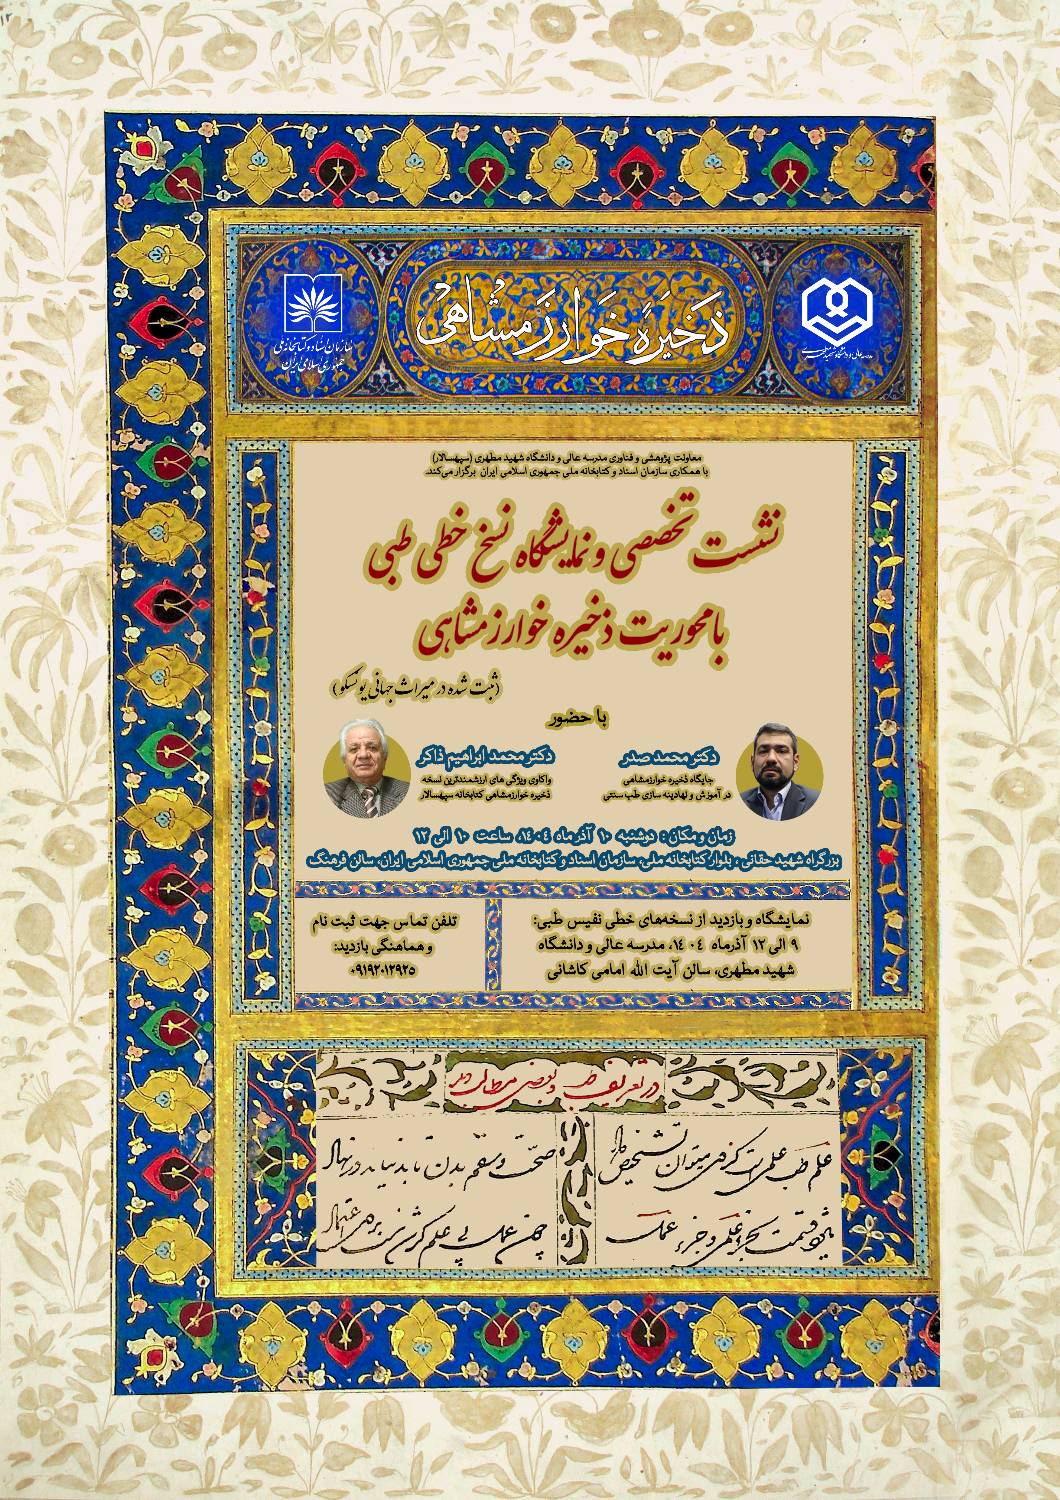 ۱۲
ذخیره خوارزمشاهی
مدرسه عالی و دانشگاه شهید مطهری
سازمان اسناد و کتابخانه ملی
جمهوری اسلامی ایران
معاونت پژوهشی و فناوری مدرسه عالی و دانشگاه شهید مطهری (سپهسالار)
با همکاری سازمان اسناد و کتابخانه ملی جمهوری اسلامی ایران برگزار می‌کند.
نشست تخصصی و نمایشگاه نسخ خطی طبی
با محوریت ذخیره خوارزمشاهی
(ثبت شده در میراث جهانی یونسکو)
با حضور
دکتر محمد صدر
جایگاه ذخیره خوارزمشاهی
در آموزش و نهادینه سازی طب سنتی
دکتر محمد ابراهیم ذاکر
واکاوی ویژگی های ارزشمندترین نسخه
ذخیره خوارزمشاهی کتابخانه سپهسالار
زمان و مکان : دوشنبه ۱۰ آذر ماه ۱۴۰۴، ساعت ۱۰ الی ۱۲
بزرگراه شهید حقانی ، بلوار کتابخانه ملی، سازمان اسناد و کتابخانه ملی جمهوری اسلامی ایران، سالن فرهنگ
نمایشگاه و بازدید از نسخه‌های خطی نفیس طبی:
۹ الی ۱۲ آذرماه ۱۴۰۴، مدرسه عالی و دانشگاه
شهید مطهری، سالن آیت الله امامی کاشانی
تلفن تماس جهت ثبت نام
و هماهنگی بازدید:
۰۹۱۹۲۰۱۲۹۲۵
در تعریف طب و بعضی مطالب
علم طب علمی است کز وی میتوان تشخیص داد
صحت و سقم بدن تا بد نیاید در نهاد